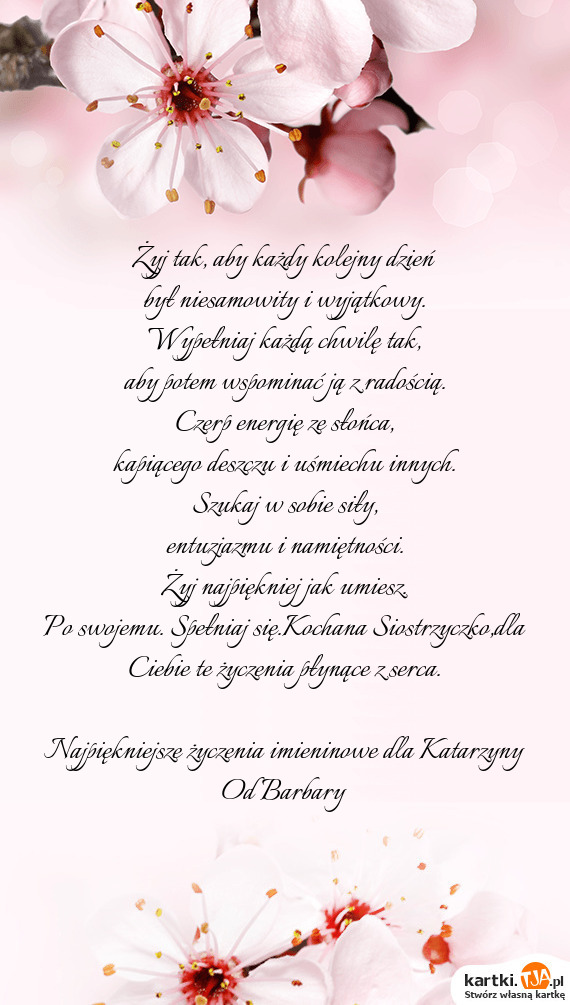 Żyj tak, aby każdy kolejny dzień
był niesamowity i wyjątkowy.
Wypełniaj każdą chwilę tak,
aby potem wspominać ją z radością.
Czerp energię ze słońca,
kapiącego deszczu i uśmiechu innych.
Szukaj w sobie siły,
entuzjazmu i namiętności.
Żyj najpiękniej jak umiesz.
Po swojemu. Spełniaj się.Kochana Siostrzyczko,dla
Ciebie te życzenia płynące z serca.
Najpiękniejsze życzenia imieninowe dla Katarzyny
Od Barbary
kartki.TJA.pl
Stwórz własną kartkę